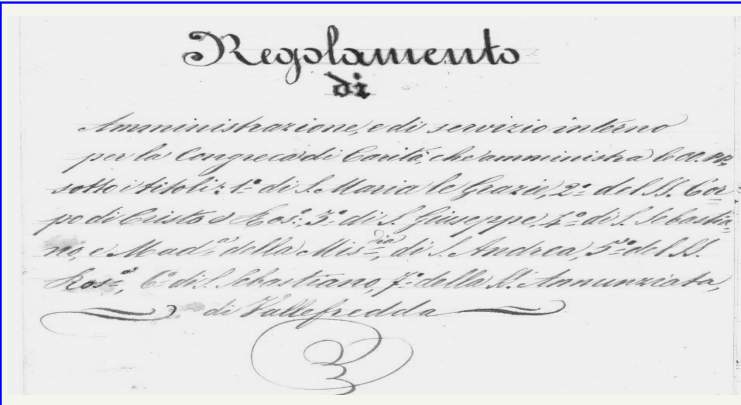 Regolamento
di
Amministrazione, e di servizio interno
per la Congreca di Carità, che amministra le OO. PP.
sotto i titoli: 1º di S. Maria le Grazie, 2º del SS. Cor
po di Cristo e Ros.º 3º di S. Giuseppe, 4º di S. Sebastia-
no, e Mad.ª della Mis.dia di S. Andrea, 5º del SS.
Ros.º, 6º di S. Sebastiano, 7º della SS. Annunziata,
di Vallefredda